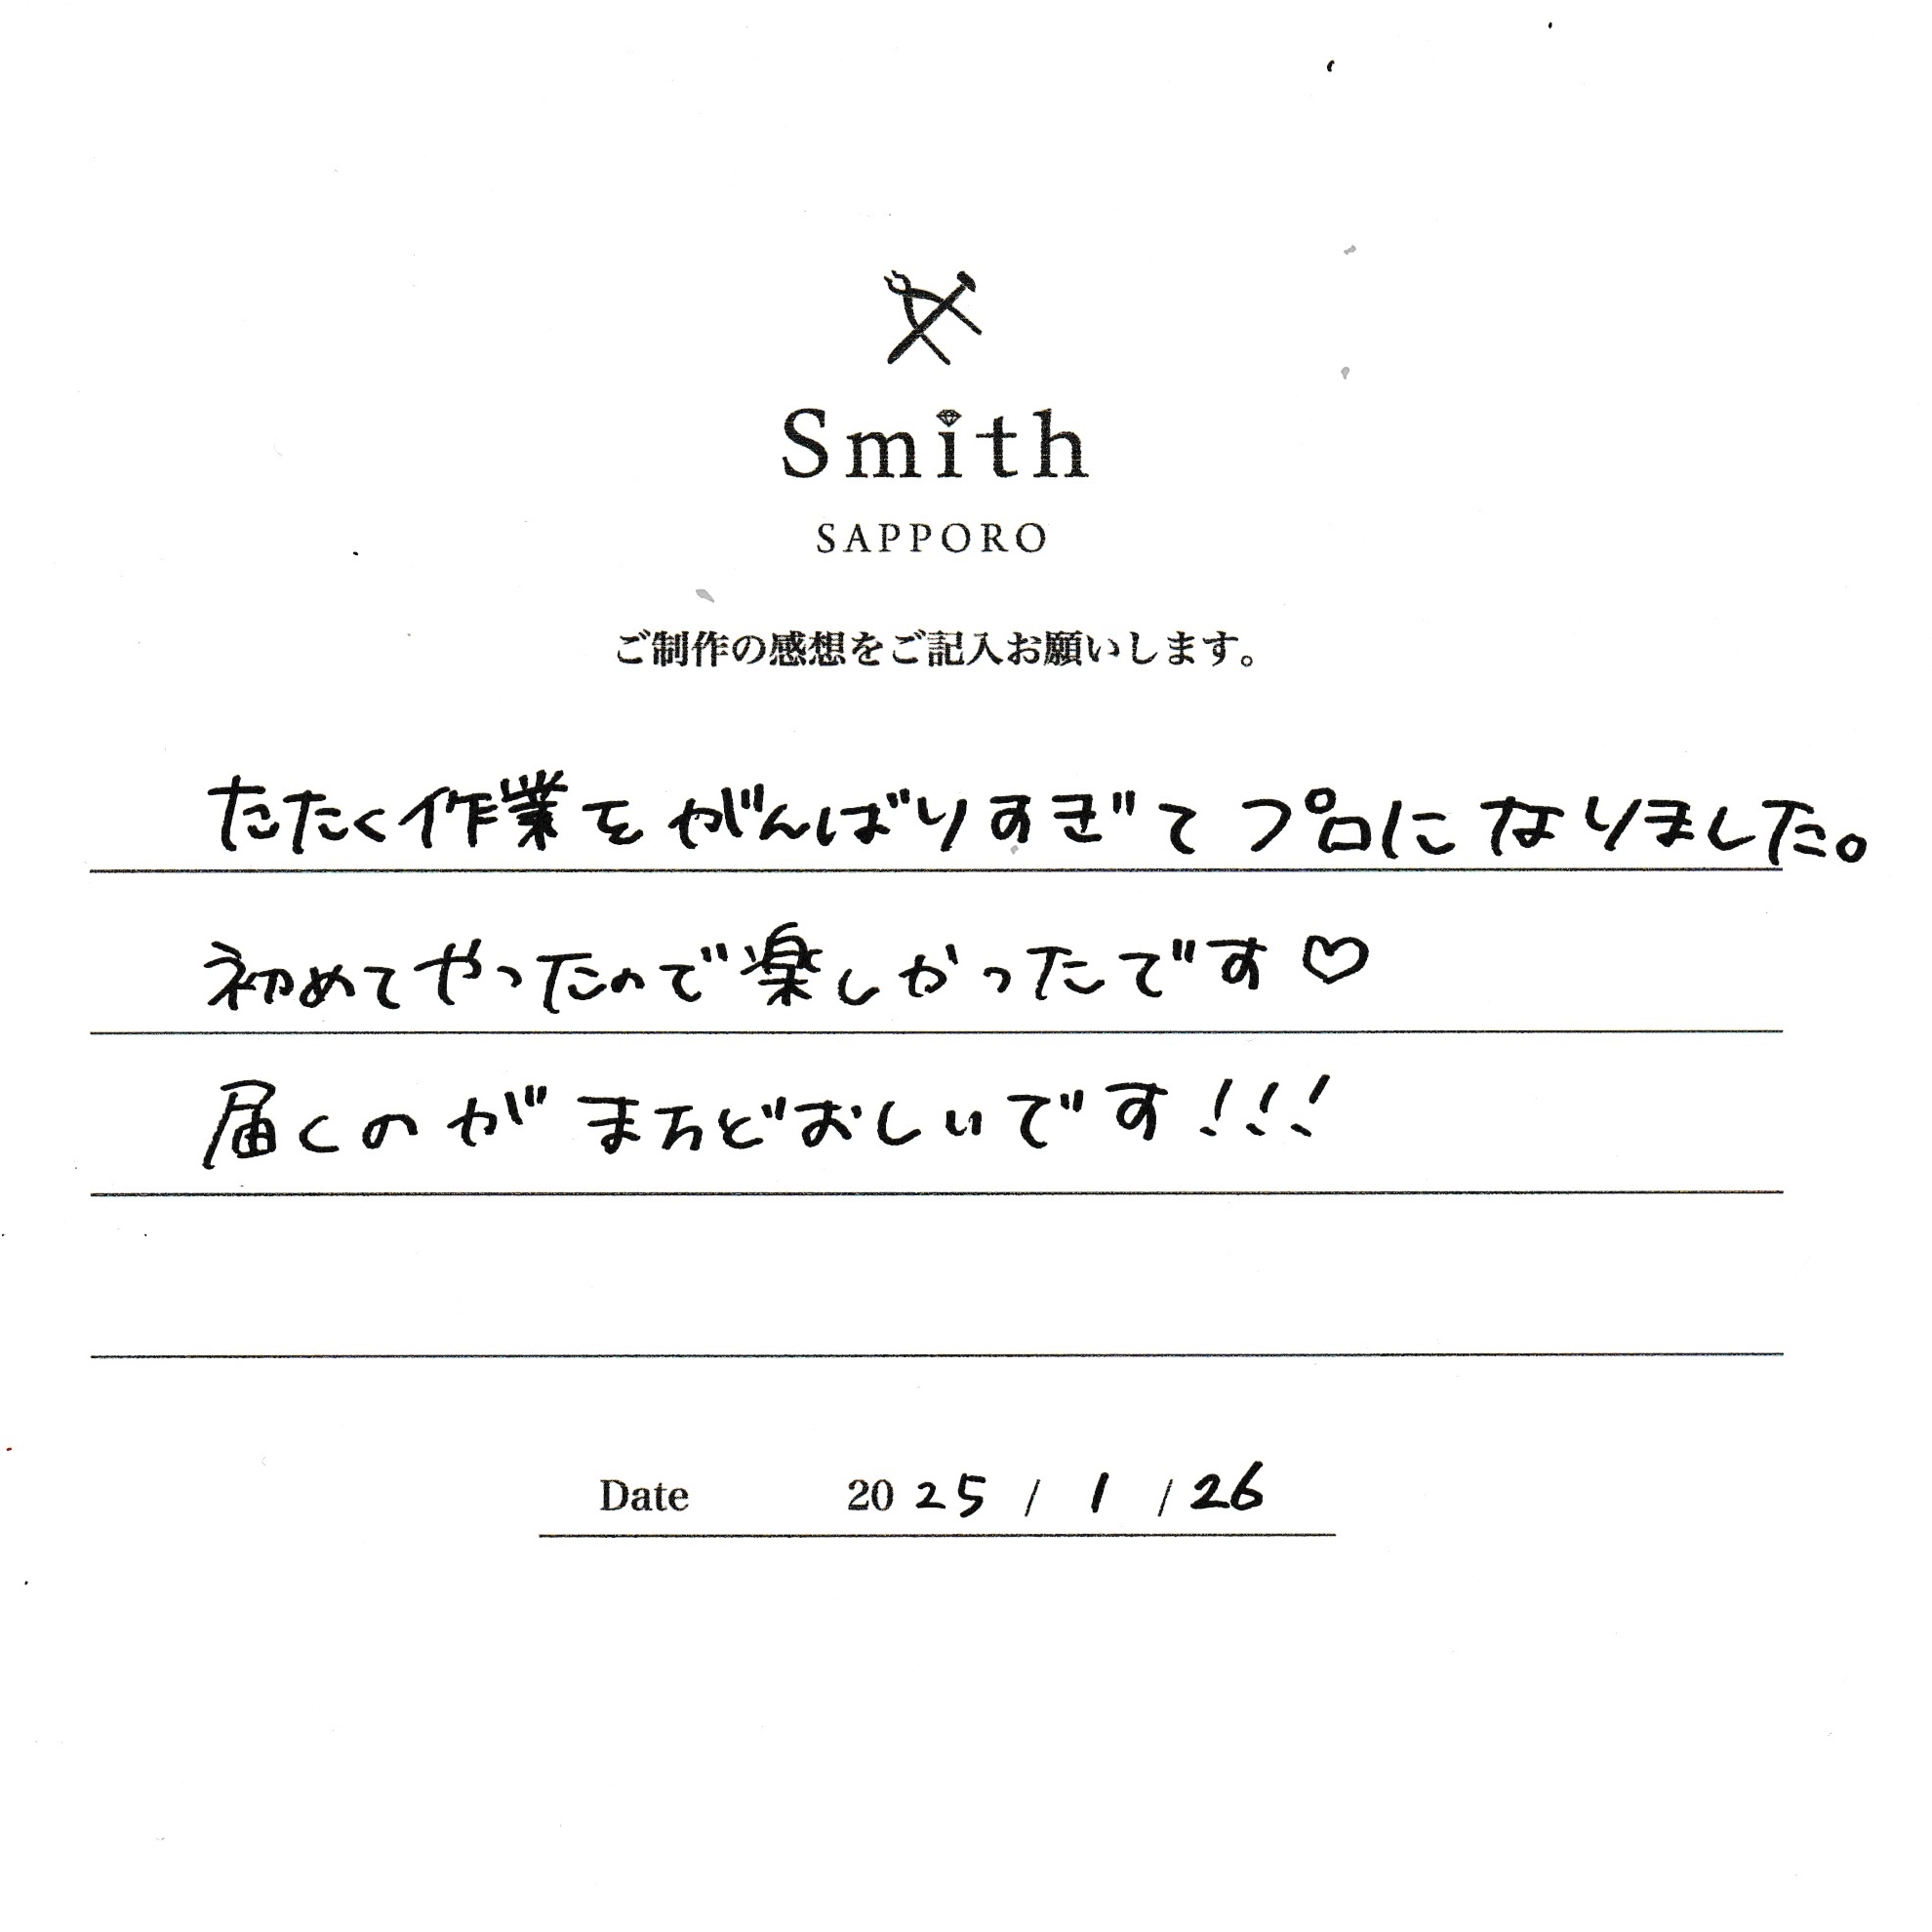 Smith
SAPPORO
ご制作の感想をご記入お願いします。
たたく作業をがんばりすぎてプロになりました。
初めてやったので楽しかったです♡
届くのがまちどおしいです!!!
Date 2025 / 1 / 26